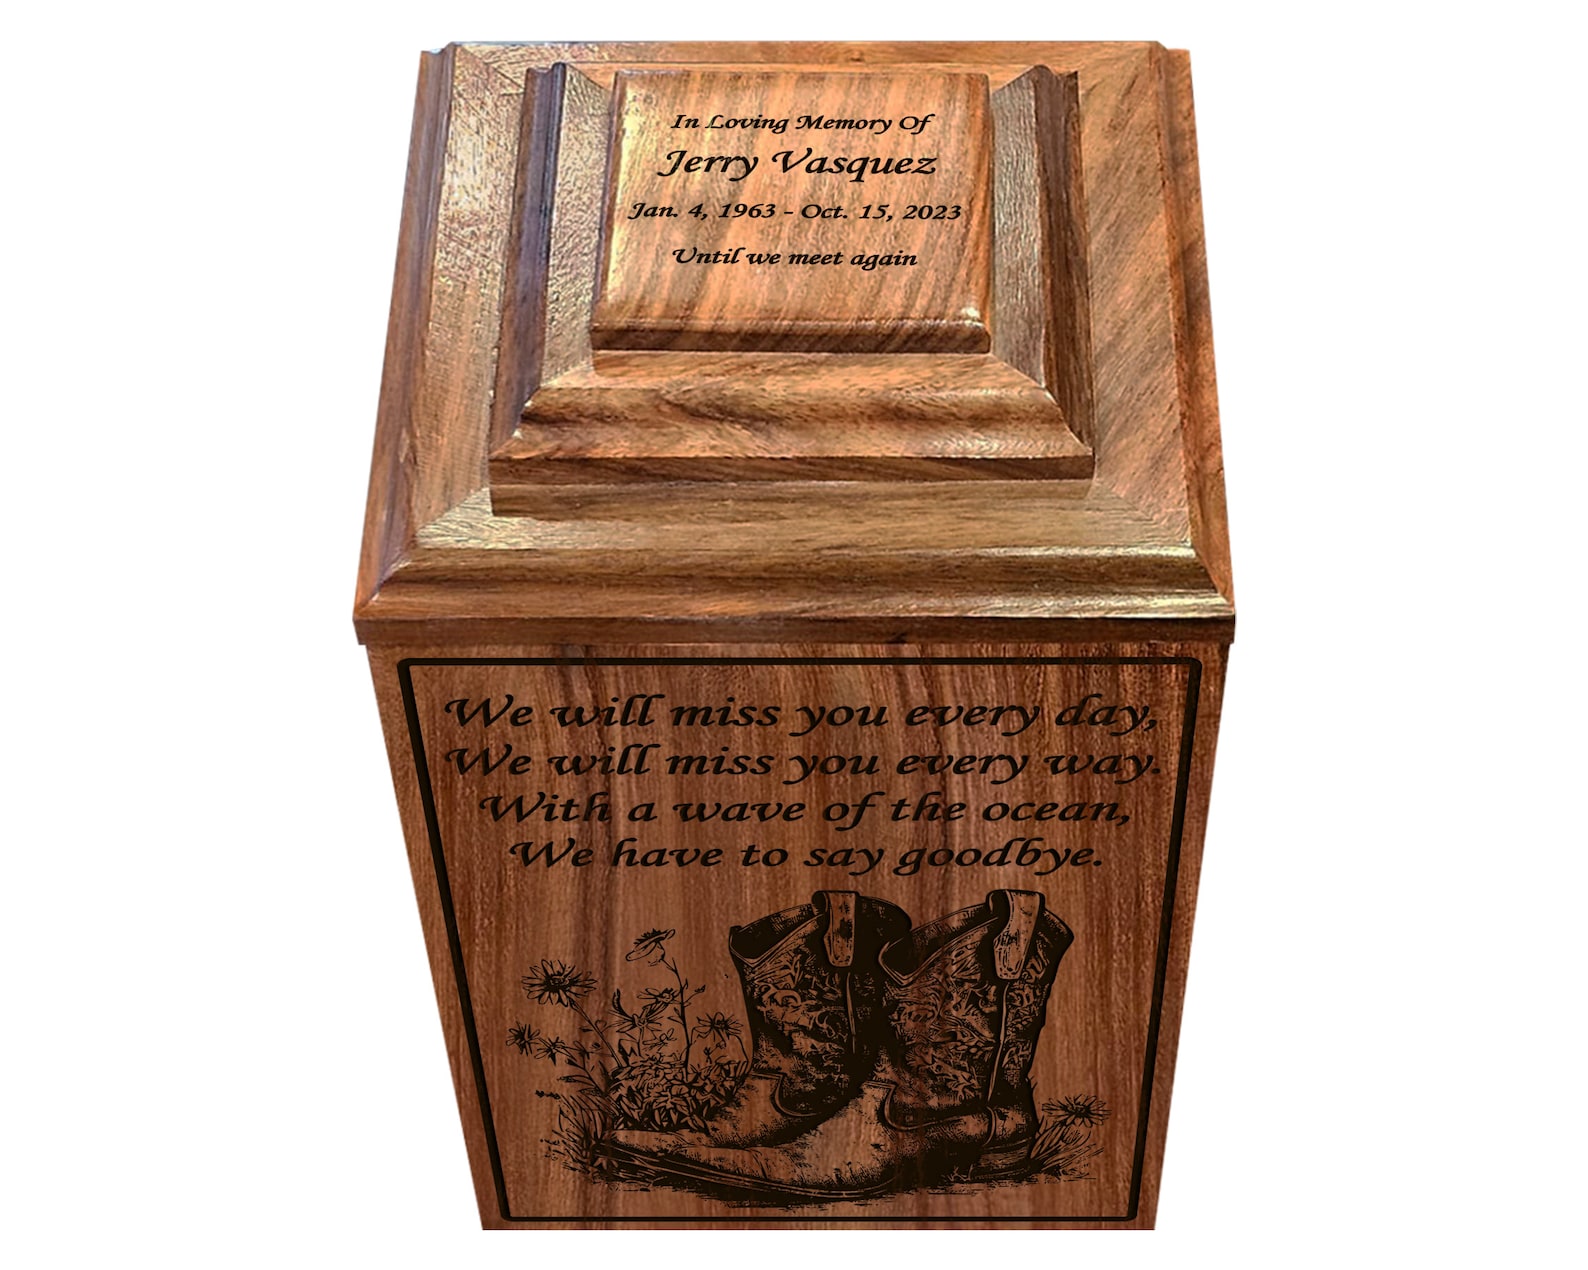 In Loving Memory Of
Jerry Vasquez
Jan. 4, 1963 - Oct. 15, 2023
Until we meet again
We will miss you every day,
We will miss you every way.
With a wave of the ocean,
We have to say goodbye.